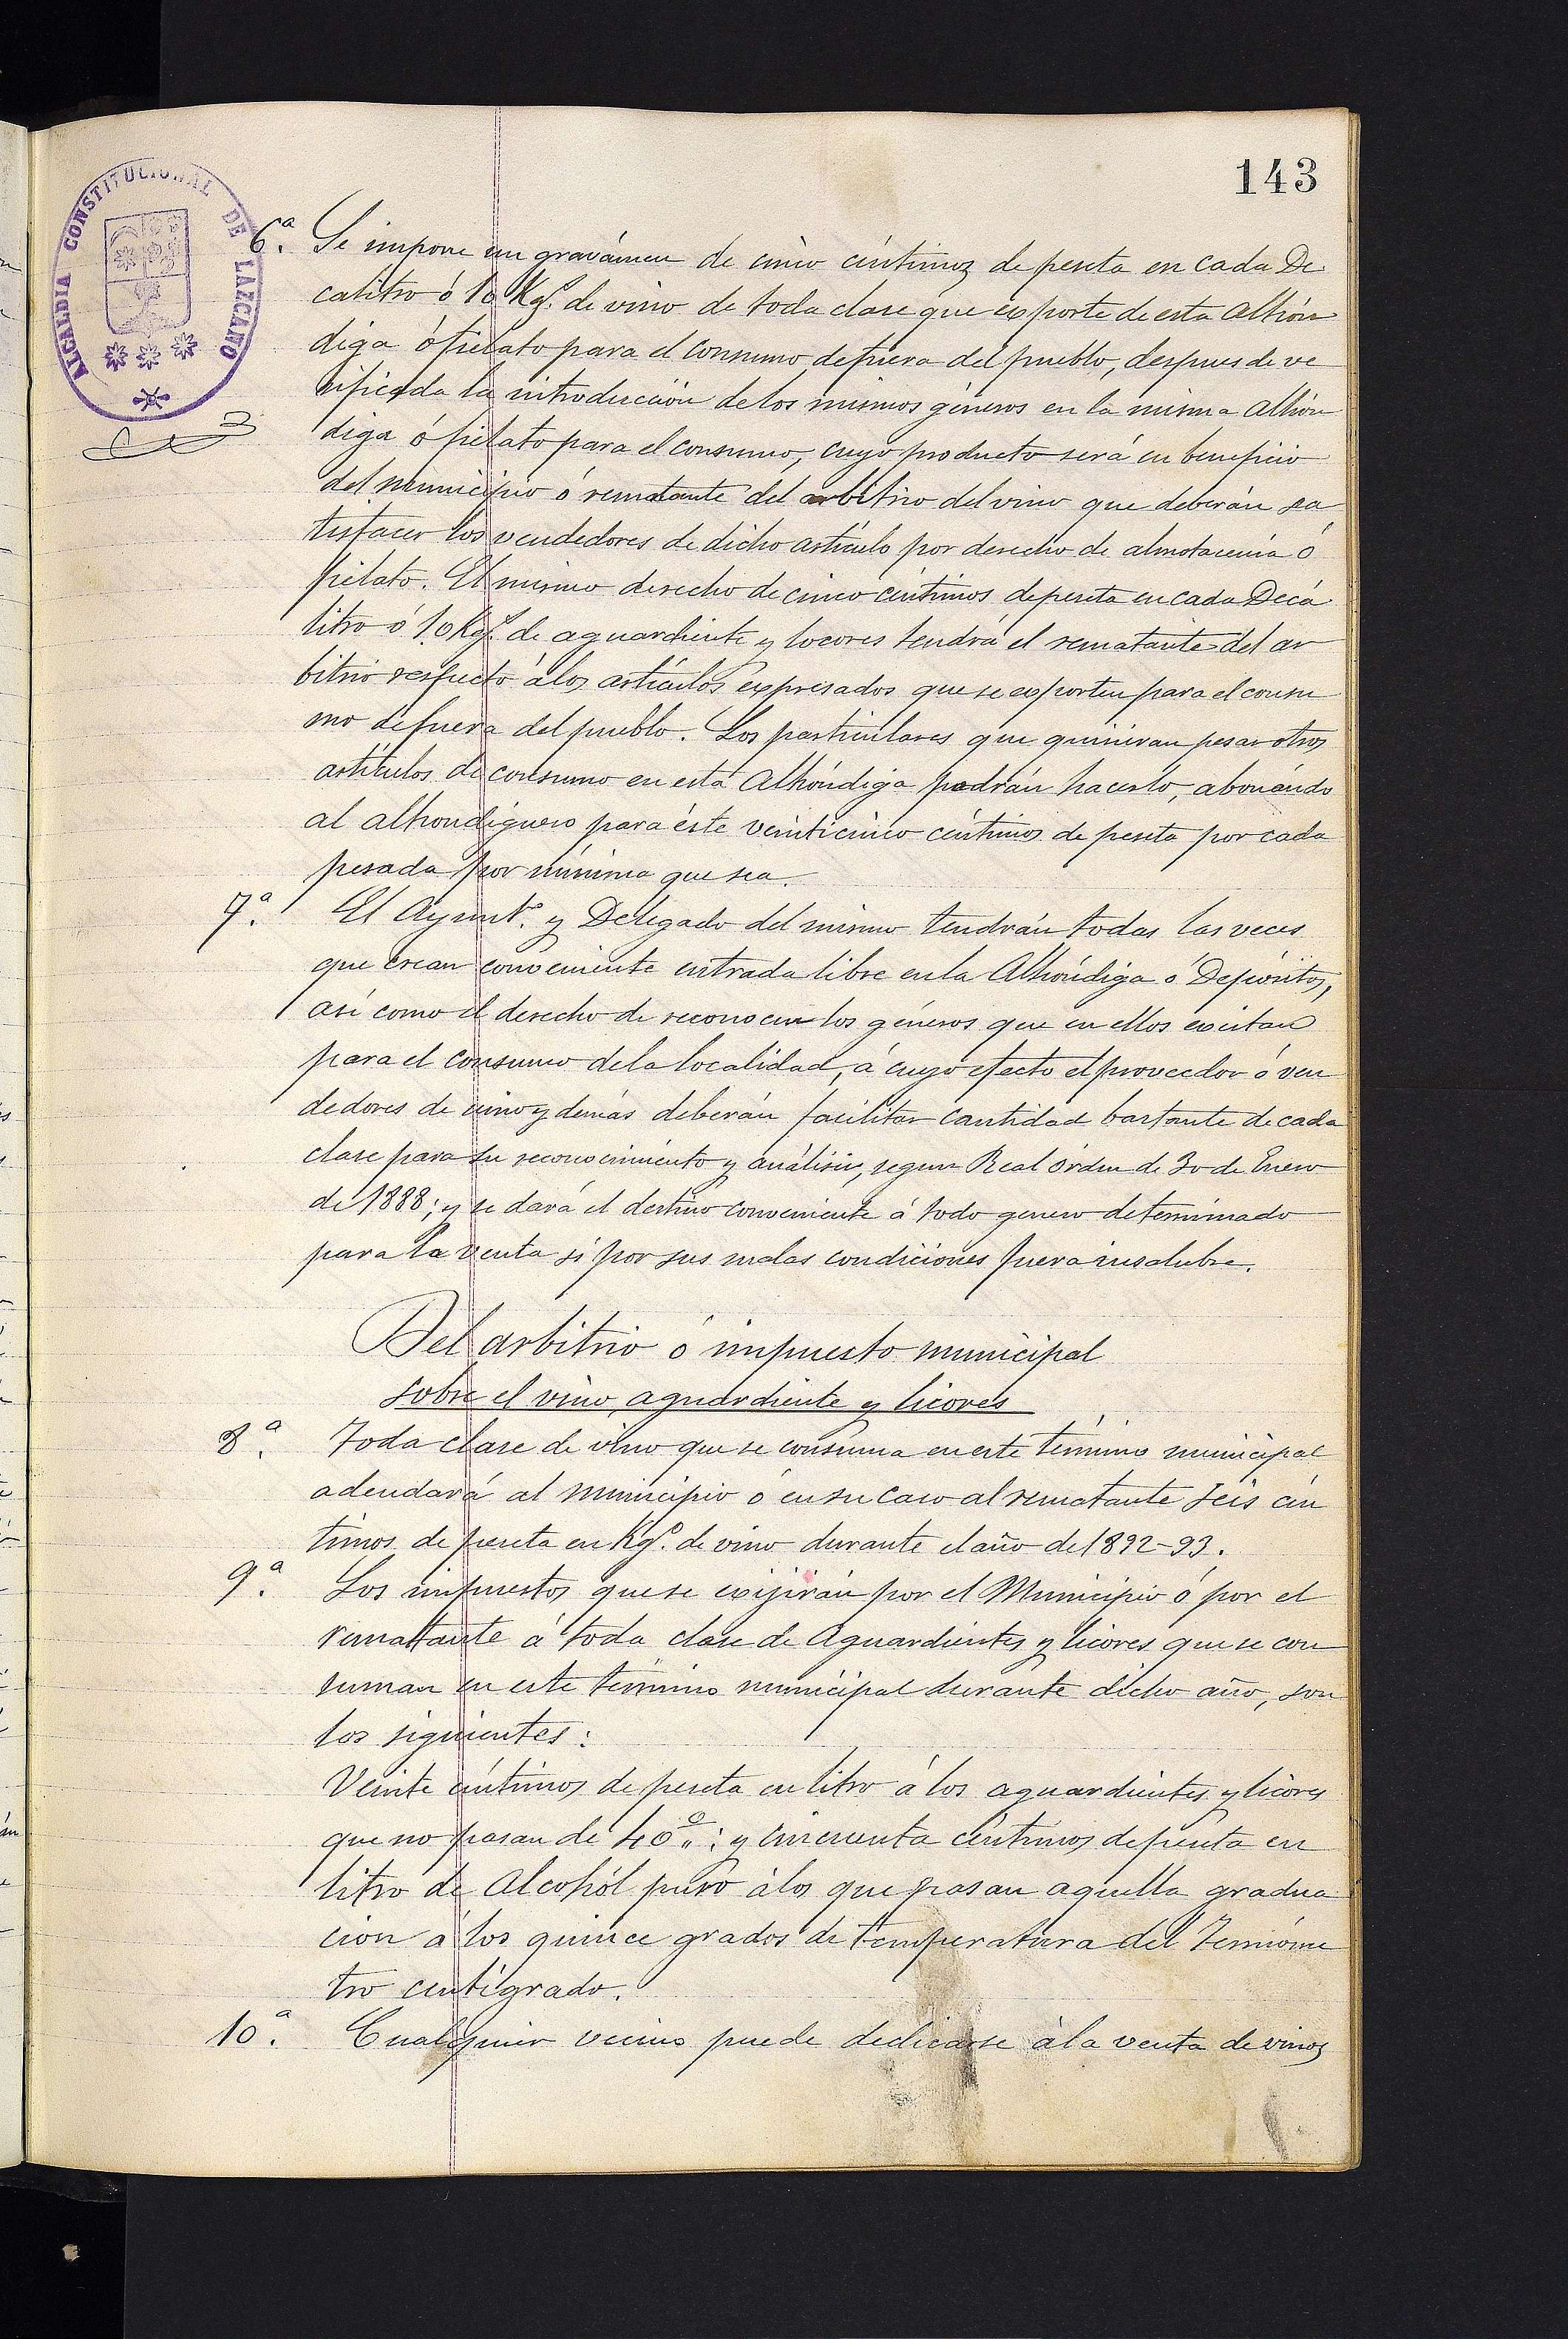 143
ALCALDIA CONSTITUCIONAL DE LAZCANO
6ª. Se impone un gravámen de cinco céntimos de peseta en cada De
calitro ó 10 Kgs. de vino de toda clase que exporte de esta Alhón
diga ó pelato para el consumo defuera del pueblo, despues de ve
rificada la introducción de los mismos géneros en la misma Alhón
diga ó pelato para el consumo, cuyo producto será en beneficio
del municipio ó rematante del arbitrio del vino que deberán sa
tisfacer los vendedores de dicho artículo por derecho de almotacenia ó
pelato. El mismo derecho de cinco céntimos de peseta en cada Decá
litro ó 10 Kgs. de aguardiente y locores tendrá el rematante del ar
bitrio respecto á los artículos expresados que se exporten para el consu
mo defuera del pueblo. Los particulares que quisieran pesar otros
artículos de consumo en esta Alhóndiga podrán hacerlo, abonándo
al alhondiguero para éste veinticinco céntimos de peseta por cada
pesada por mínima que sea.
7ª. El Ayuntº. y Delegado del mismo tendrán todas las veces
que crean conveniente entrada libre en la Alhóndiga ó Depósitos,
así como el derecho de reconocer los géneros que en ellos existan
para el consumo de la localidad, á cuyo efecto el proveedor ó ven
dedores de vino y demás deberán facilitar cantidad bastante de cada
clase para su reconocimiento y análisis, segun Real órden de 30 de Enero
de 1888; y se dará el destino conveniente á todo genero determinado
para la venta si por sus malas condiciones fuera insalubre.
Del arbitrio ó impuesto municipal
sobre el vino, aguardiente y licores
8ª. Toda clase de vino que se consuma en este término municipal
adeudará al Municipio ó en su caso al rematante seis cén
timos de peseta en Kgº. de vino durante el año de 1892-93.
9ª. Los impuestos que se exijirán por el Municipio ó por el
rematante á toda clase de Aguardientes y licores que se con
suman en este término municipal durante dicho año, son
los siguientes:
Veinte céntimos de peseta en litro á los aguardientes y licores
que no pasan de 40º: y cincuenta céntimos de peseta en
litro de Alcohól puro á los que pasan aquella gradua
cion á los quince grados de temperatura del Termóme
tro centígrado.
10ª. Cualquier vecino puede dedicarse á la venta de vinos